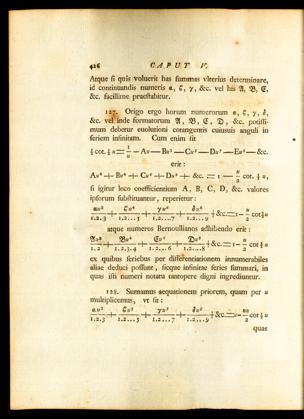 426 CAPUT V.
Atque si quis voluerit has summas vlterius determinare,
id continuandis numeris α, ℭ, γ, &c. vel his 𝔄, 𝔅, ℭ,
&c. facillime praestabitur.
127. Origo ergo horum numerorum α, ℭ, γ, δ,
&c. vel inde formatorum 𝔄, 𝔅, ℭ, 𝔇, &c. potissi-
mum debetur euolutioni cotangentis cuiusuis anguli in
seriem infinitam. Cum enim sit
½ cot. ½ u = 1/u — Au — Bu³ — Cu⁵ — Du⁷ — Eu⁹ — &c.
erit:
Au² + Bu⁴ + Cu⁶ + Du⁸ + &c. = 1 — u/2 cot. ½ u,
si igitur loco coefficientium A, B, C, D, &c. valores
ipsorum substituantur, reperietur:
αu²/1.2.3 + ℭu⁴/1.2...5 + γu⁶/1.2...7 + δu⁸/1.2...9 + &c. = 1 — u/2 cot ½ u
atque numeros Bernoullianos adhibendo erit:
𝔄u²/1.2 + 𝔅u⁴/1.2.3.4 + ℭu⁶/1.2...6 + 𝔇u⁸/1.2...8 + &c. = 1 — u/2 cot ½ u
ex quibus seriebus per differentiationem innumerabiles
aliae deduci possunt, sicque infinitae series summari, in
quas isti numeri notatu tantopere digni ingrediuntur.
128. Sumamus aequationem priorem, quam per u
multiplicemus, vt sit:
αu³/1.2.3 + ℭu⁵/1.2...5 + γu⁷/1.2...7 + δu⁹/1.2...9 + &c. = u — uu/2 cot ½ u
quae